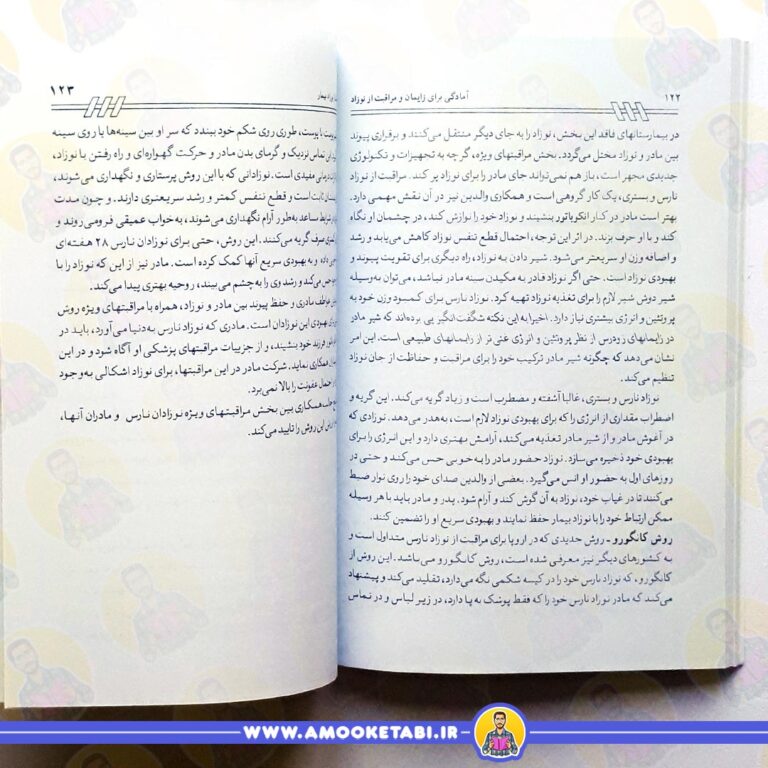 ۱۲۲
آمادگی برای زایمان و مراقبت از نوزاد
در بیمارستانهای فاقد این بخش، نوزاد را به جای دیگر منتقل می‌کنند و برقراری پیوند
بین مادر و نوزاد مختل می‌گردد. بخش مراقبتهای ویژه، گرچه به تجهیزات و تکنولوژی
جدیدی مجهر است، باز هم نمی‌تواند جای مادر را برای نوزاد پر کند. مراقبت از نوزاد
نارس و بستری، یک کار گروهی است و همکاری والدین نیز در آن نقش مهمی دارد.
بهتر است مادر در کنار انکوباتور بنشیند و نوزاد خود را نوازش کند، در چشمان او نگاه
کند و با او حرف بزند. در اثر این توجه، احتمال قطع تنفس نوزاد کاهش می‌یابد و رشد
و اضافه وزن او سریعتر می‌شود. شیر دادن به نوزاد، راه دیگری برای تقویت پیوند و
بهبودی نوزاد است. حتی اگر نوزاد قادر به مکیدن سینه مادر نباشد، می‌توان به‌وسیله
شیر دوش شیر لازم را برای تغذیه نوزاد تهیه کرد. نوزاد نارس برای کمبود وزن خود به
پروتئین و انرژی بیشتری نیاز دارد. اخیرا به این نکته شگفت‌انگیز پی برده‌اند که شیر مادر
در زایمانهای زودرس از نظر پروتئین و انرژی غنی تر از زایمانهای طبیعی است. این امر
نشان می‌دهد که چگونه شیر مادر ترکیب خود را برای مراقبت و حفاظت از جان نوزاد
تنظیم می‌کند.
نوزاد نارس و بستری، غالبا آشفته و مضطرب است و زیاد گریه می‌کند. این گریه و
اضطراب مقداری از انرژی را که برای بهبودی نوزاد لازم است، به‌هدر می‌دهد. نوزادی که
در آغوش مادر و از شیر مادر تغذیه می‌کند، آرامش بهتری دارد و این انرژی را برای
بهبودی خود ذخیره می‌سازد. نوزاد حضور مادر را به خوبی حس می‌کند و حتی در
روزهای اول به حضور او انس می‌گیرد. بعضی از والدین صدای خود را روی نوار ضبط
می‌کنند تا در غیاب خود، نوزاد به آن گوش کند و آرام شود. پدر و مادر باید با هر وسیله
ممکن ارتباط خود را با نوزاد بیمار حفظ نمایند و بهبودی سریع او را تضمین کنند.
روش کانگورو ـ روش جدیدی که در اروپا برای مراقبت از نوزاد نارس متداول است و
به کشورهای دیگر نیز معرفی شده است، روش کانگورو می‌باشد. این روش از
کانگورو، که نوزاد نارس خود را در کیسه شکمی نگه می‌دارد، تقلید می‌کند و پیشنهاد
می‌کند که مادر نوزاد نارس خود را که فقط پوشک به پا دارد، در زیر لباس و در تماس
۱۲۳
بیمار
با پوست، طوری روی شکم خود ببندد که سر او بین سینه‌ها یا روی سینه
تماس نزدیک و گرمای بدن مادر و حرکت گهواره‌ای و راه رفتن با نوزاد،
مفیدی است. نوزادانی که با این روش پرستاری و نگهداری می‌شوند،
ثابت است و قطع تنفس کمتر و رشد سریعتری دارند. و چون مدت
شرایط مساعد به‌طور آرام نگهداری می‌شوند، به‌خواب عمیقی فرو می‌روند و
صرف گریه می‌کنند. این روش، حتی برای نوزادان نارس ۲۸ هفته‌ای
داده و به بهبودی سریع آنها کمک کرده است. مادر نیز از این که نوزاد را با
حس می‌کند و رشد وی را به‌چشم می‌بیند، روحیه بهتری پیدا می‌کند.
عواطف مادری و حفظ پیوند بین مادر و نوزاد، همراه با مراقبتهای ویژه روش
بهبودی این نوزادان است. مادری که نوزاد نارس به‌دنیا می‌آورد، باید در
فرزند خود بنشیند، و از جزییات مراقبتهای پزشکی او آگاه شود و در این
همکاری نماید. شرکت مادر در این مراقبتها، برای نوزاد اشکالی به‌وجود
احتمال عفونت را بالا نمی‌برد.
همکاری بین بخش مراقبتهای ویژه نوزادان نارس و مادران آنها،
این روش را تایید می‌کند.
WWW.AMOOKETABI.IR